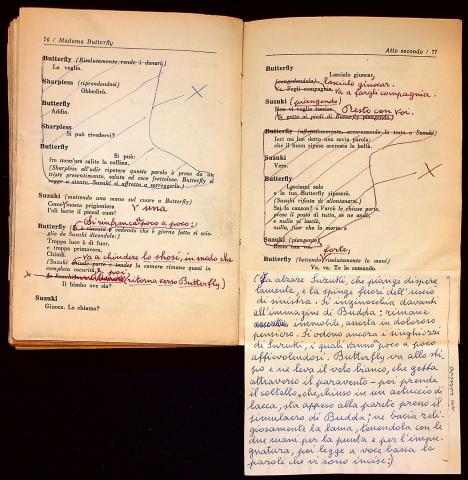 76 / Madama Butterfly
Butterfly (Risolutamente rende i danari)
La voglio.
Sharpless (riprendendosi)
Obbedirò.
Butterfly
Addio.
Sharpless
Si può rivedervi?
Butterfly
Si può:
fra mezz'ora salite la collina.
(Sharpless all'udir ripetere queste parole è preso da un
triste presentimento, saluta ed esce frettoloso. Butterfly si
regge a stento. Suzuki si affretta a sorreggerla.)
Suzuki (mettendo una mano sul cuore a Butterfly)
Come mosca prigioniera
V una
l'ali batte il piccol cuor!
(Si rinfranca poco a poco:)
Butterfly
che è giorno fatto si scio-
glie da Suzuki dicendole:)
Troppa luce è di fuor,
e troppa primavera.
Chiudi. (va a chiudere lo shosi, in modo che
(Suzuki la camera rimane quasi in
completa oscurità.)
X (ritorna verso Butterfly)
Il bimbo ove sia?
Suzuki
Giuoca. Lo chiamo?
Atto secondo / 77
Butterfly
Lascialo giuocar,
lascialo giuocar.
Va. Fagli compagnia.
va a fargli compagnia.
Suzuki (piangendo)
Non vi voglio lasciar. Resto con voi.
(Si getta ai piedi di Butterfly piangendo)
Butterfly (affettuosamente, accarezzando la testa a Suzuki)
Ieri mi hai detto una savia parola:
che il buon riposo accresce la beltà.
Suzuki
Vero.
Butterfly
Lasciami sola
e la tua Butterfly riposerà.
(Suzuki rifiuta di allontanarsi.)
Sai la canzon? « Varcò le chiuse porte,
prese il posto di tutto, se ne andò,
e nulla vi lasciò,
nulla, fuor che la morte.»
Suzuki (piangendo)
forte,
Butterfly (battendo risolutamente le mani)
Va, va. Te lo comando.
X
(Fa alzare Suzuki, che piange dispera
tamente, e la spinge fuori dell'uscio
di sinistra. Si inginocchia davanti
all'immagine di Budda: rimane
immobile, assorta in doloroso
pensiero. Si odono ancora i singhiozzi
di Suzuki, i quali vanno poco a poco
affievolendosi. Butterfly va allo sti-
po e ne leva il velo bianco, che getta
attraverso il paravento - poi prende
il coltello, che, chiuso in un astuccio di
lacca, sta appeso alla parete presso il
simulacro di Budda; ne bacia reli-
giosamente la lama, tenendola con le
due mani per la punta e per l'impu-
gnatura, poi legge a voce bassa le
parole che vi sono incise:)